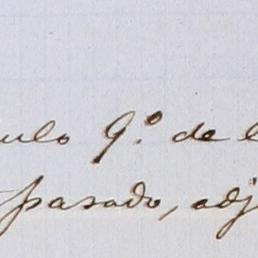 ulo 9.º de l
pasado, adj